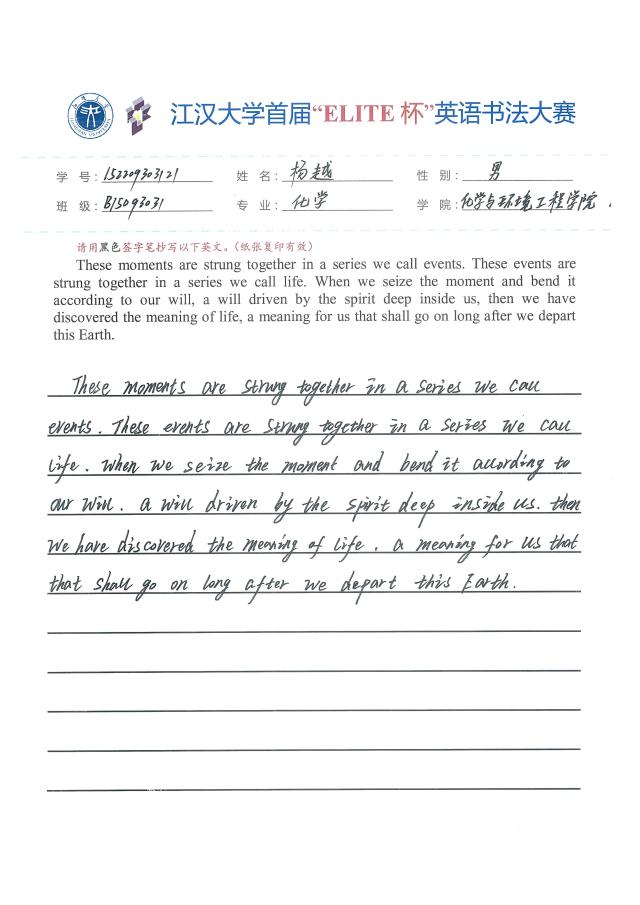 江汉大学首届“ELITE 杯”英语书法大赛
学 号：152209303121 姓 名：杨越 性 别：男
班 级：B15093031 专 业：化学 学 院：化学与环境工程学院
请用黑色签字笔抄写以下英文。（纸张复印有效）
These moments are strung together in a series we call events. These events are
strung together in a series we call life. When we seize the moment and bend it
according to our will, a will driven by the spirit deep inside us, then we have
discovered the meaning of life, a meaning for us that shall go on long after we depart
this Earth.
These moments are strung together in a series we call
events. These events are strung together in a series we call
life. When we seize the moment and bend it according to
our will. a will driven by the spirit deep inside us. then
we have discovered the meaning of life. a meaning for us that
that shall go on long after we depart this Earth.